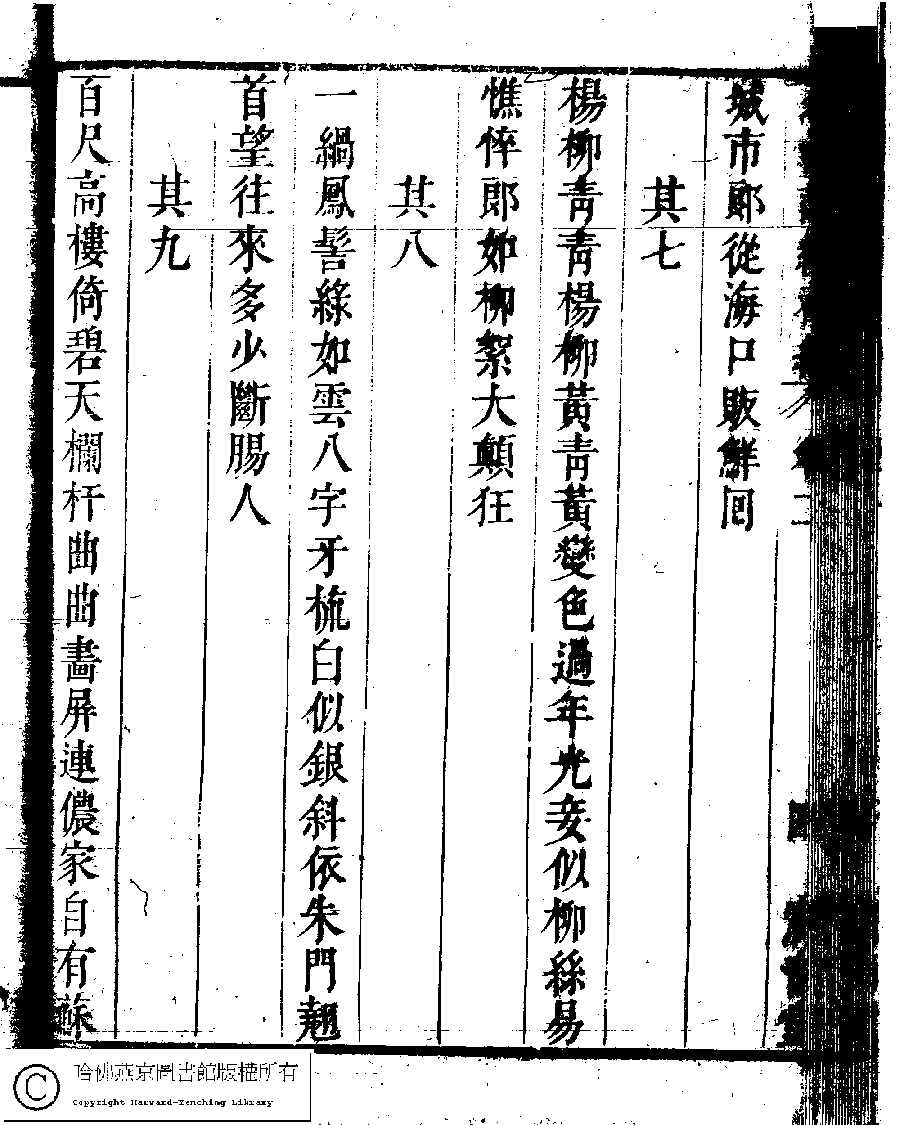 城市郎從海口販鮮囘
其七
楊柳青青楊柳黃青黃變色過年光妾似柳絲易
憔悴郎如柳絮大顛狂
其八
一緺鳳髻綠如雲八字牙梳白似銀斜依朱門翹
首望往來多少斷腸人
其九
百尺高樓倚碧天欄杆曲曲畵屏連儂家自有蘇
哈佛燕京圖書館版權所有
Copyright Harvard-Yenching Library